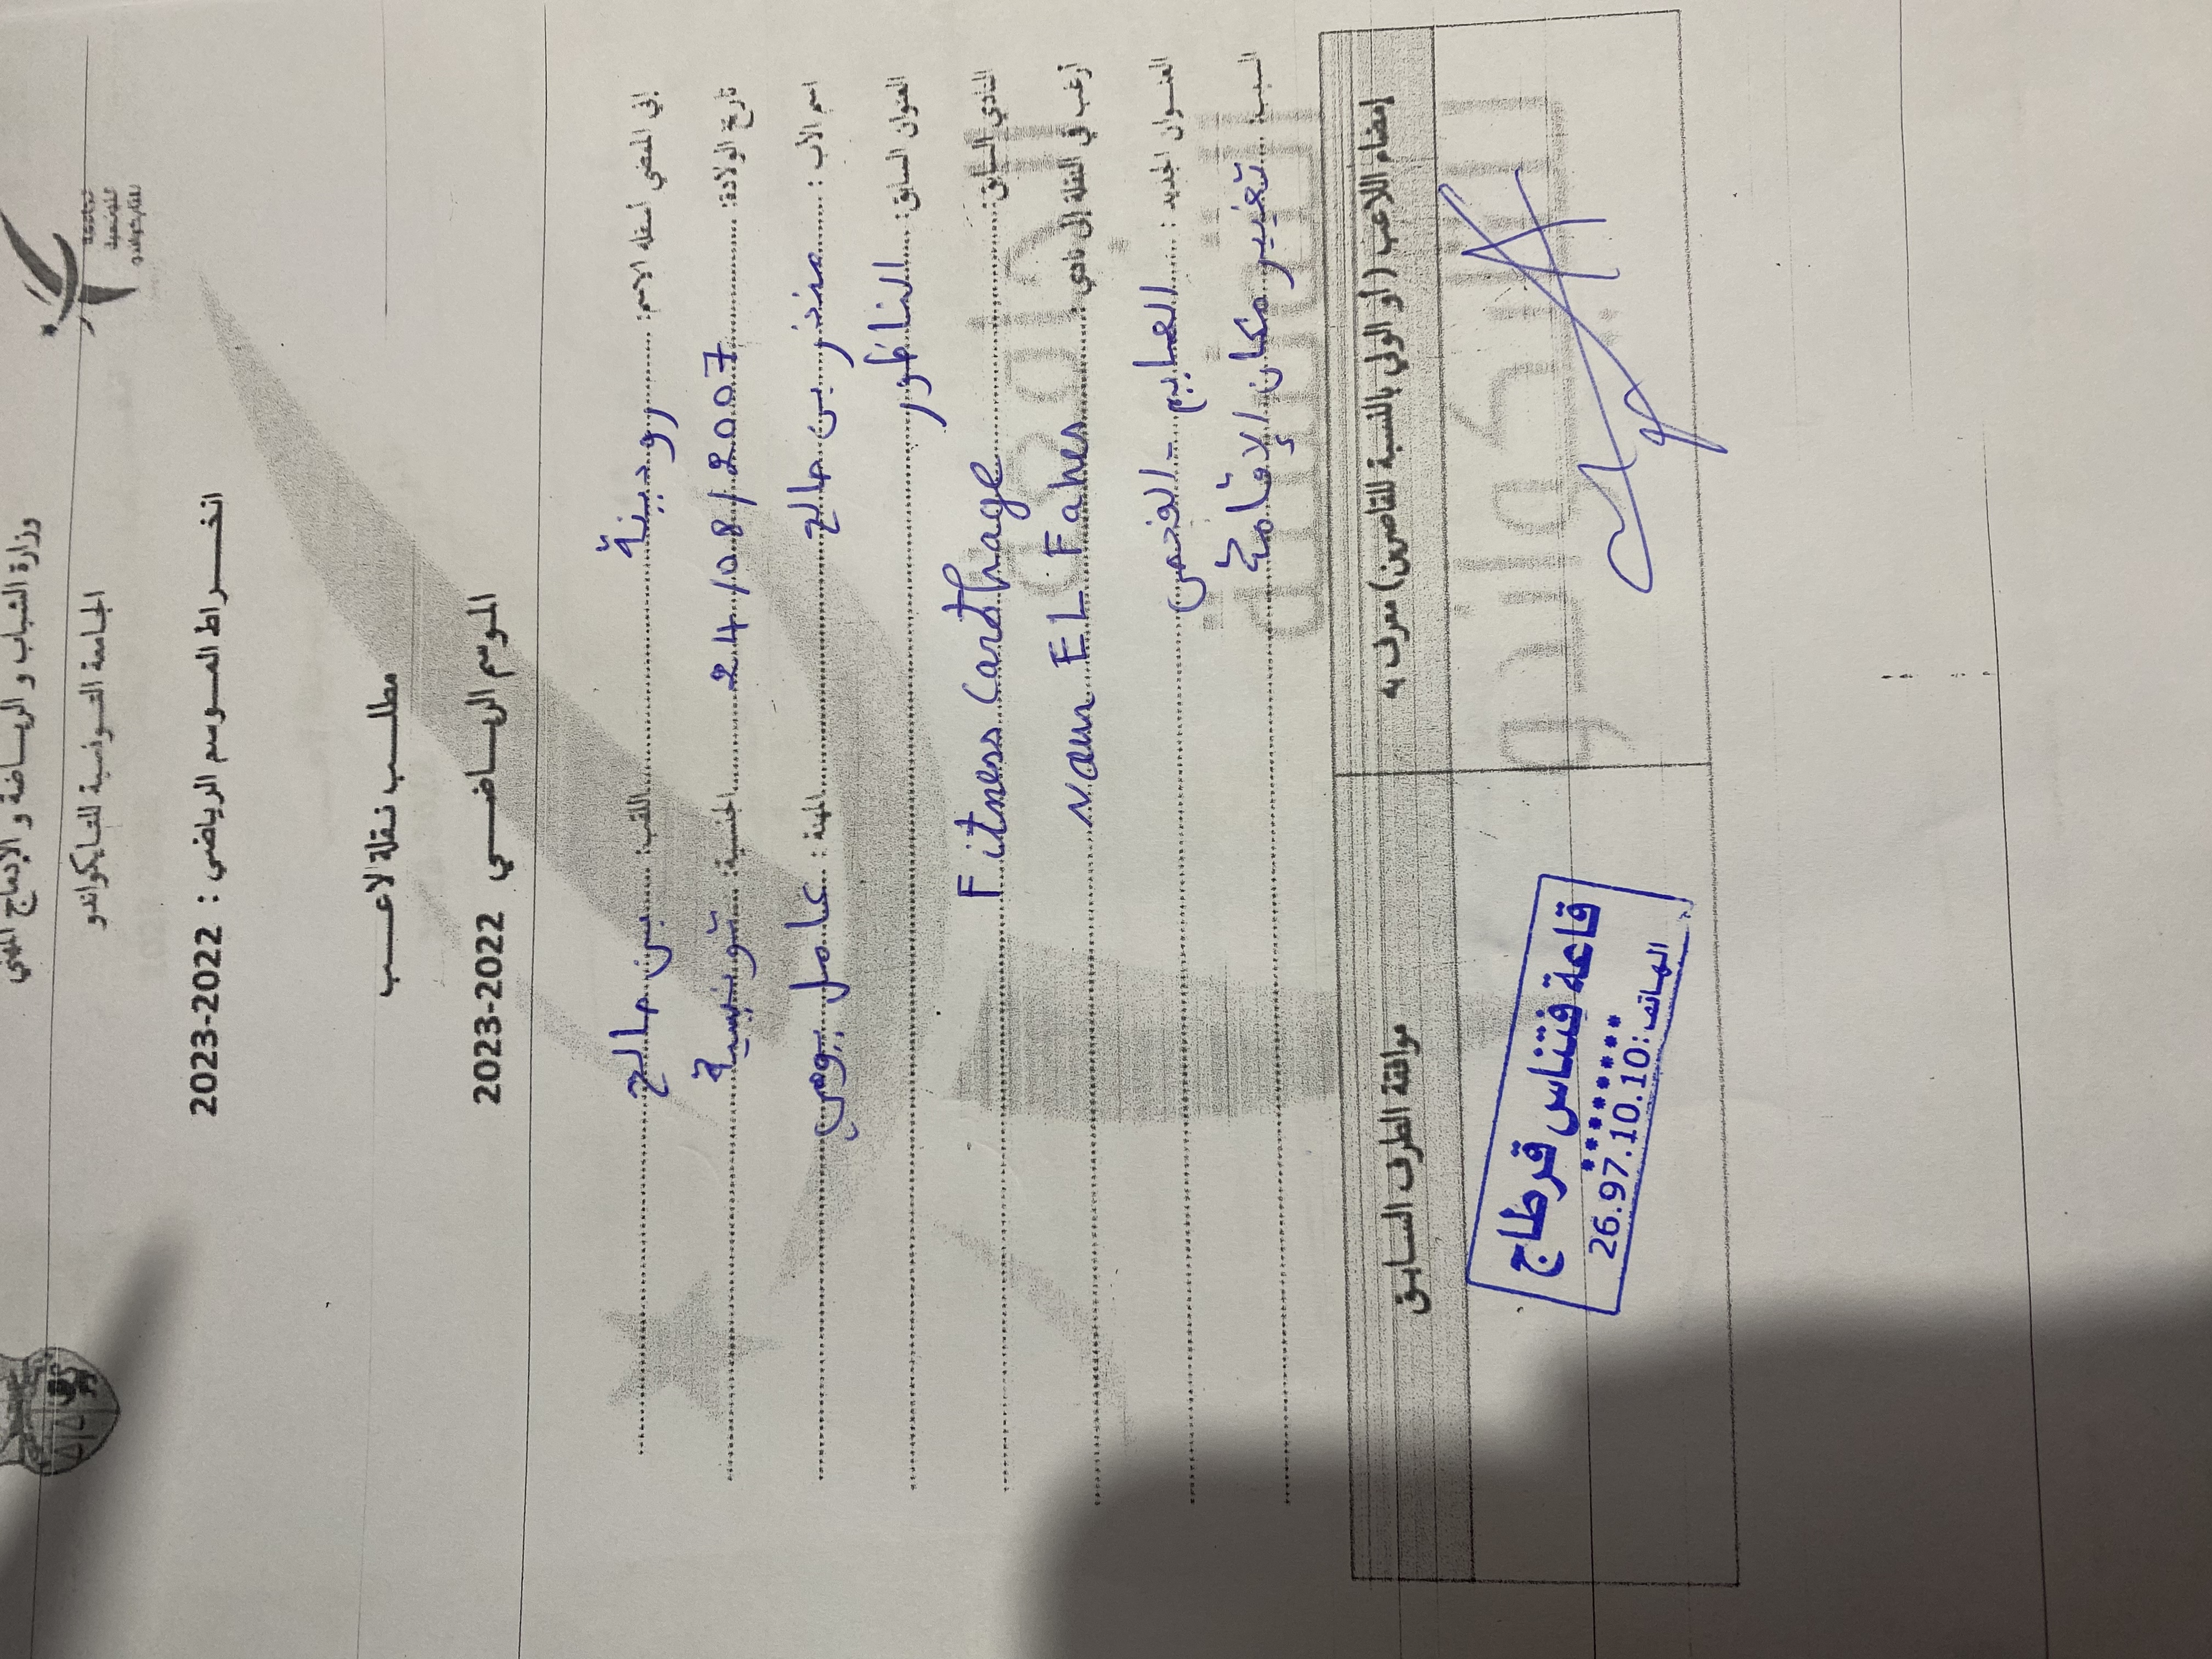 وزارة الشباب و الرياضة و الإدماج المهني
الجامعة التونسية للتايكواندو
انخراط الموسم الرياضي : 2022-2023
مطلب نقلة لاعب
الموسم الرياضي 2022-2023
إني الممضي أسفله الاسم: رودينة اللقب: بن صالح
تاريخ الولادة: 24/08/2007 الجنسية: تونسية
اسم الأب : منذر بن صالح المهنة : عامل يومي
العنوان السابق: الناظور
النادي السابق: Fitness Carthage
أرغب في النقلة إلى نادي: EL Fahes
العنوان الجديد : - الفحص
السبب: تغيير مكان الإقامة
إمضاء اللاعب ( أو الولي بالنسبة للقاصرين) معرف به
موافقة الطرف السابق
قاعة فتناس قرطاج
********
الهاتف: 26.97.10.10